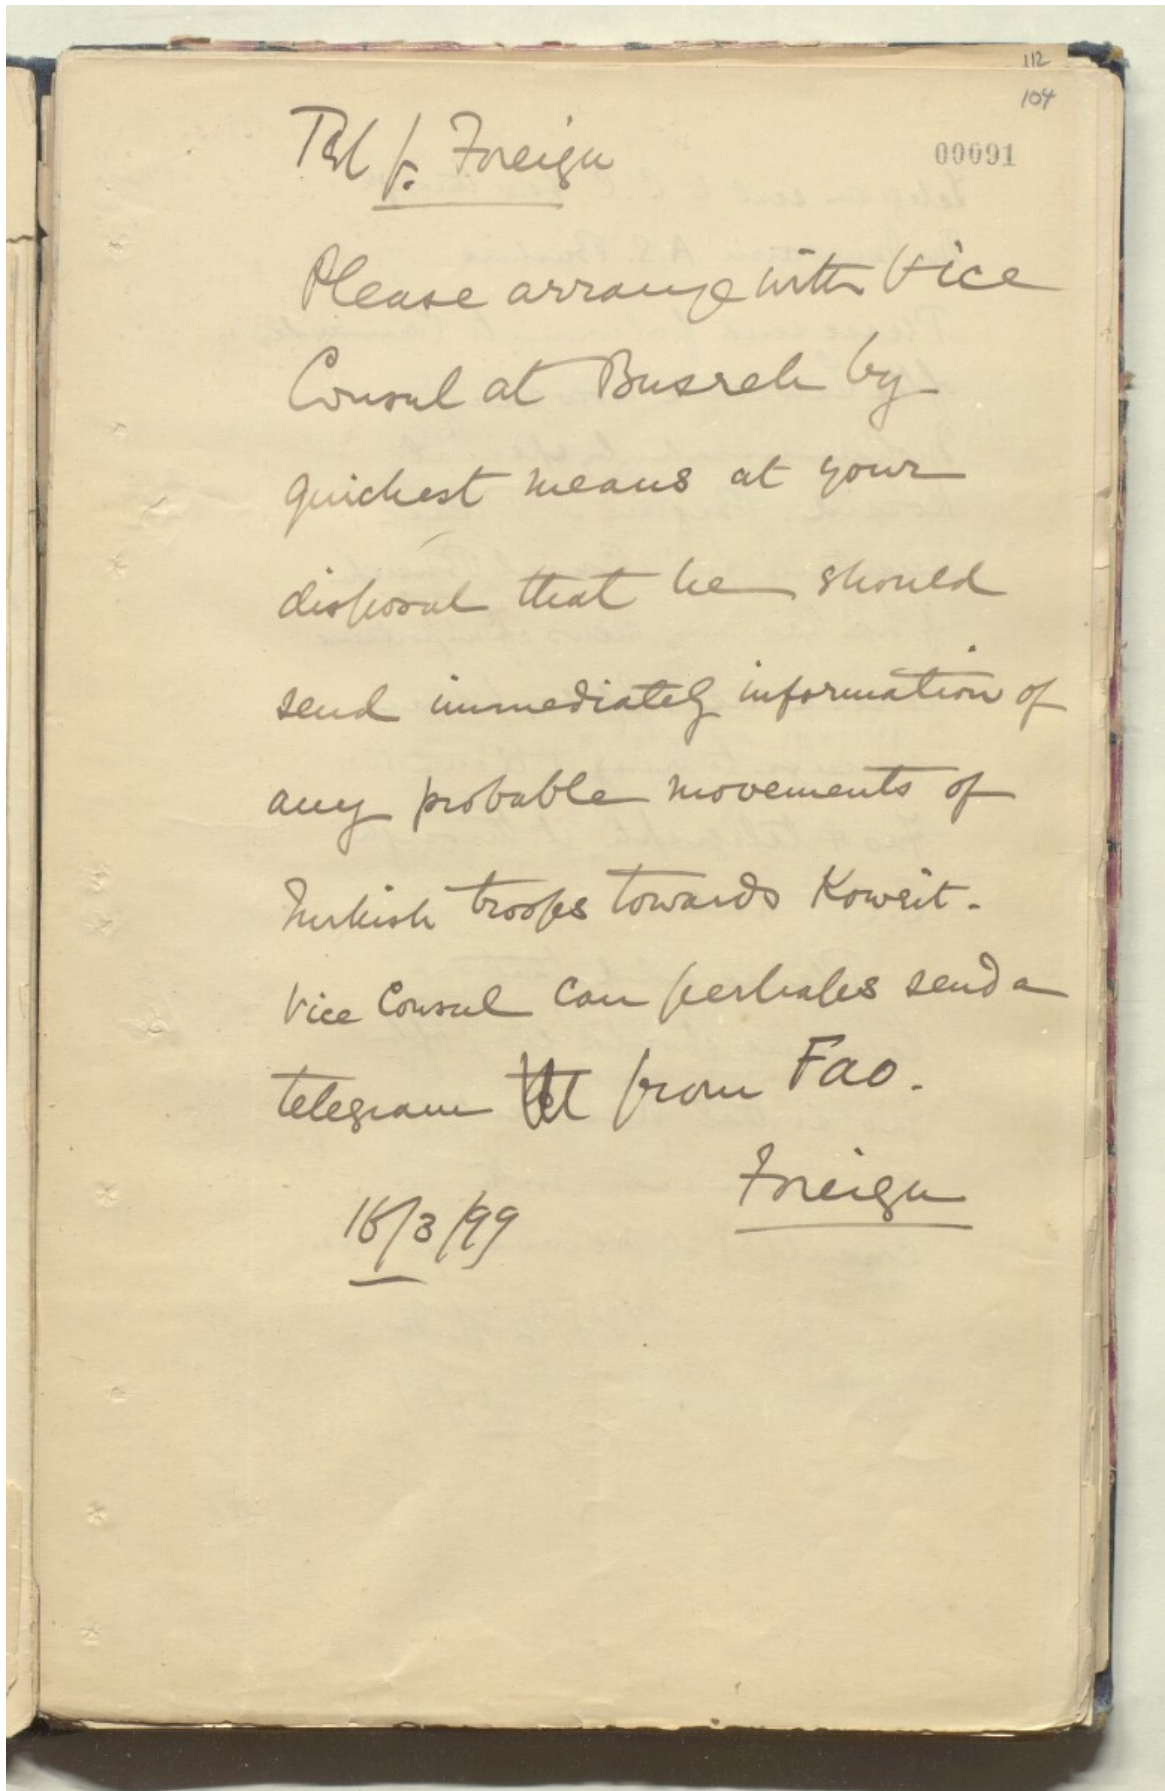 112
104
00091
Tel f. Foreign
Please arrange with Vice
Consul at Busreh by
quickest means at your
disposal that he should
send immediately information of
any probable movements of
Turkish troops towards Koweit.
Vice Consul can perhaps send a
telegram from Fao.
Foreign
/3/99